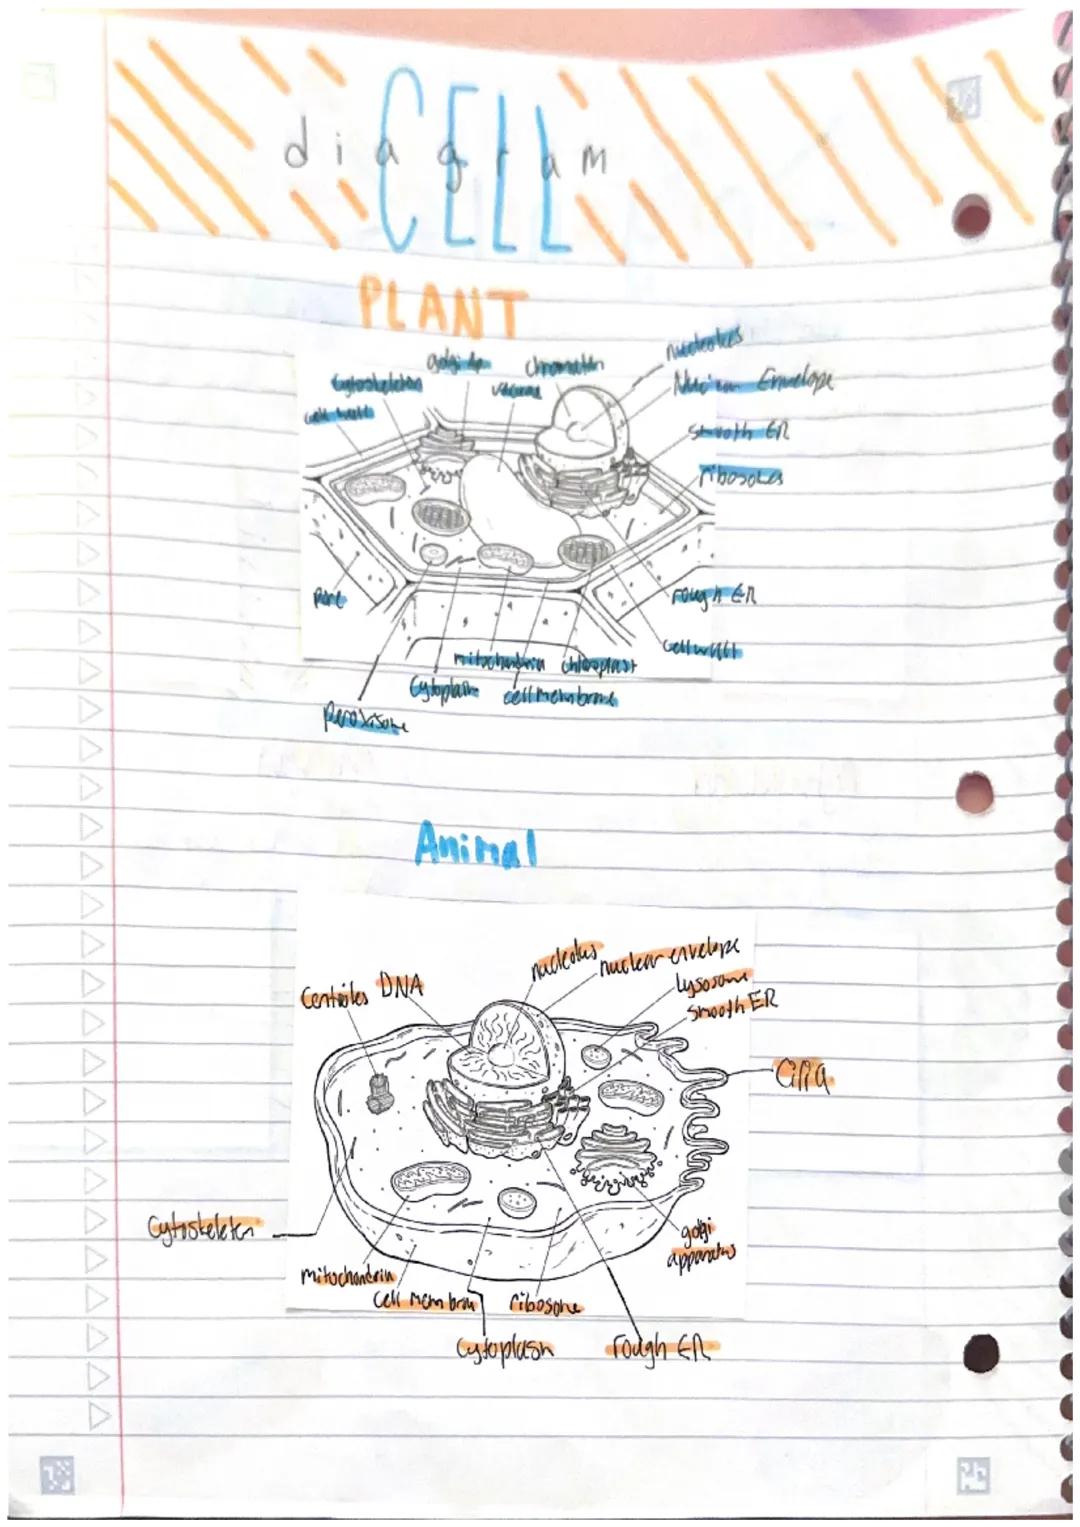 CELL
diagram
PLANT
nucleolus
golgi Ap
chromatin
Envelope
Cytoskeleton
vacuole
cell wall
smooth ER
ribosomes
pore
rough ER
cell wall
mitochondria chloroplast
Cytoplasm cell membrane
peroxisome
Animal
nucleolus
nuclear envelope
lysosome
Centrioles DNA
smooth ER
Cilia
Cytoskeleton
golgi
apparatus
mitochondrin
cell membran
ribosome
Cytoplasm
rough ER